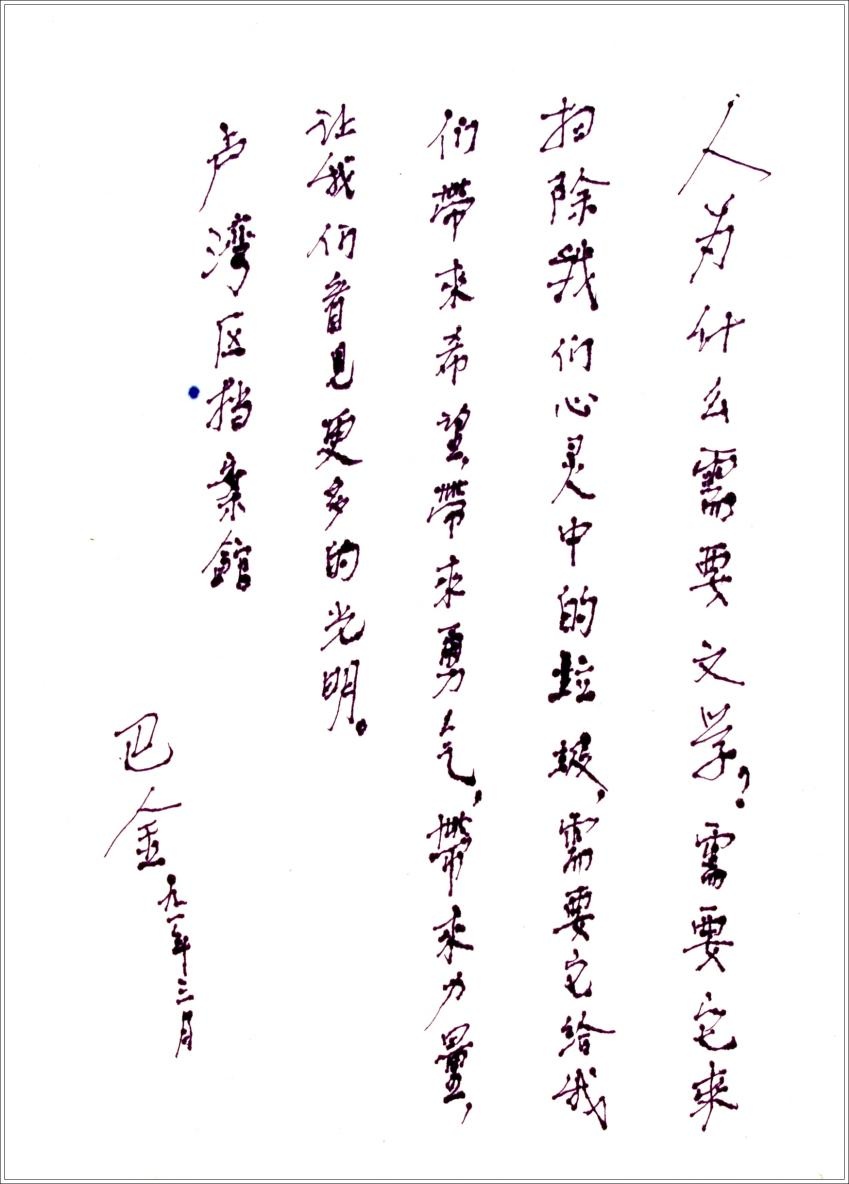 人为什么需要文学？需要它来
扫除我们心灵中的垃圾，需要它给我
们帶来希望，帶来勇气，帶来力量，
让我们看见更多的光明。
卢湾区档案館
巴金
九一年三月